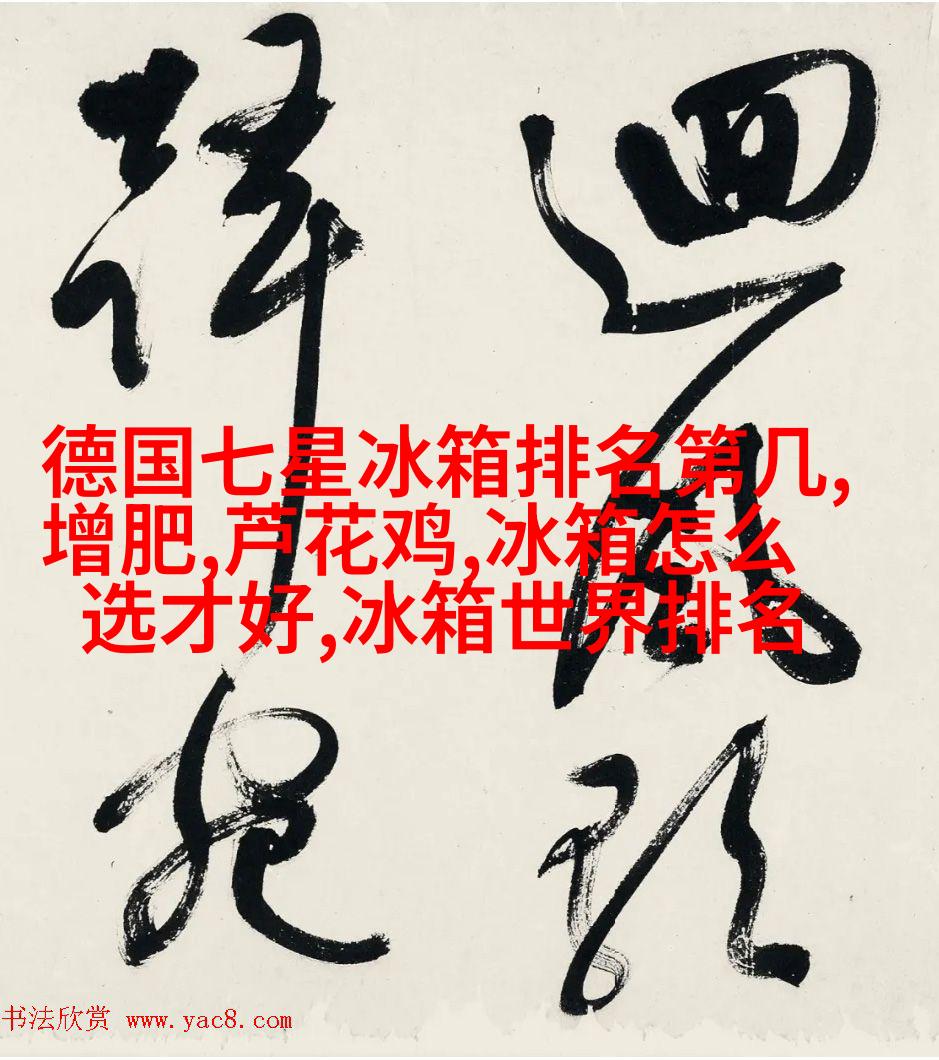 迴風
德国七星冰箱排名第几,
增肥,芦花鸡,冰箱怎么
选才好,冰箱世界排名
书法欣赏 www.yac8.com